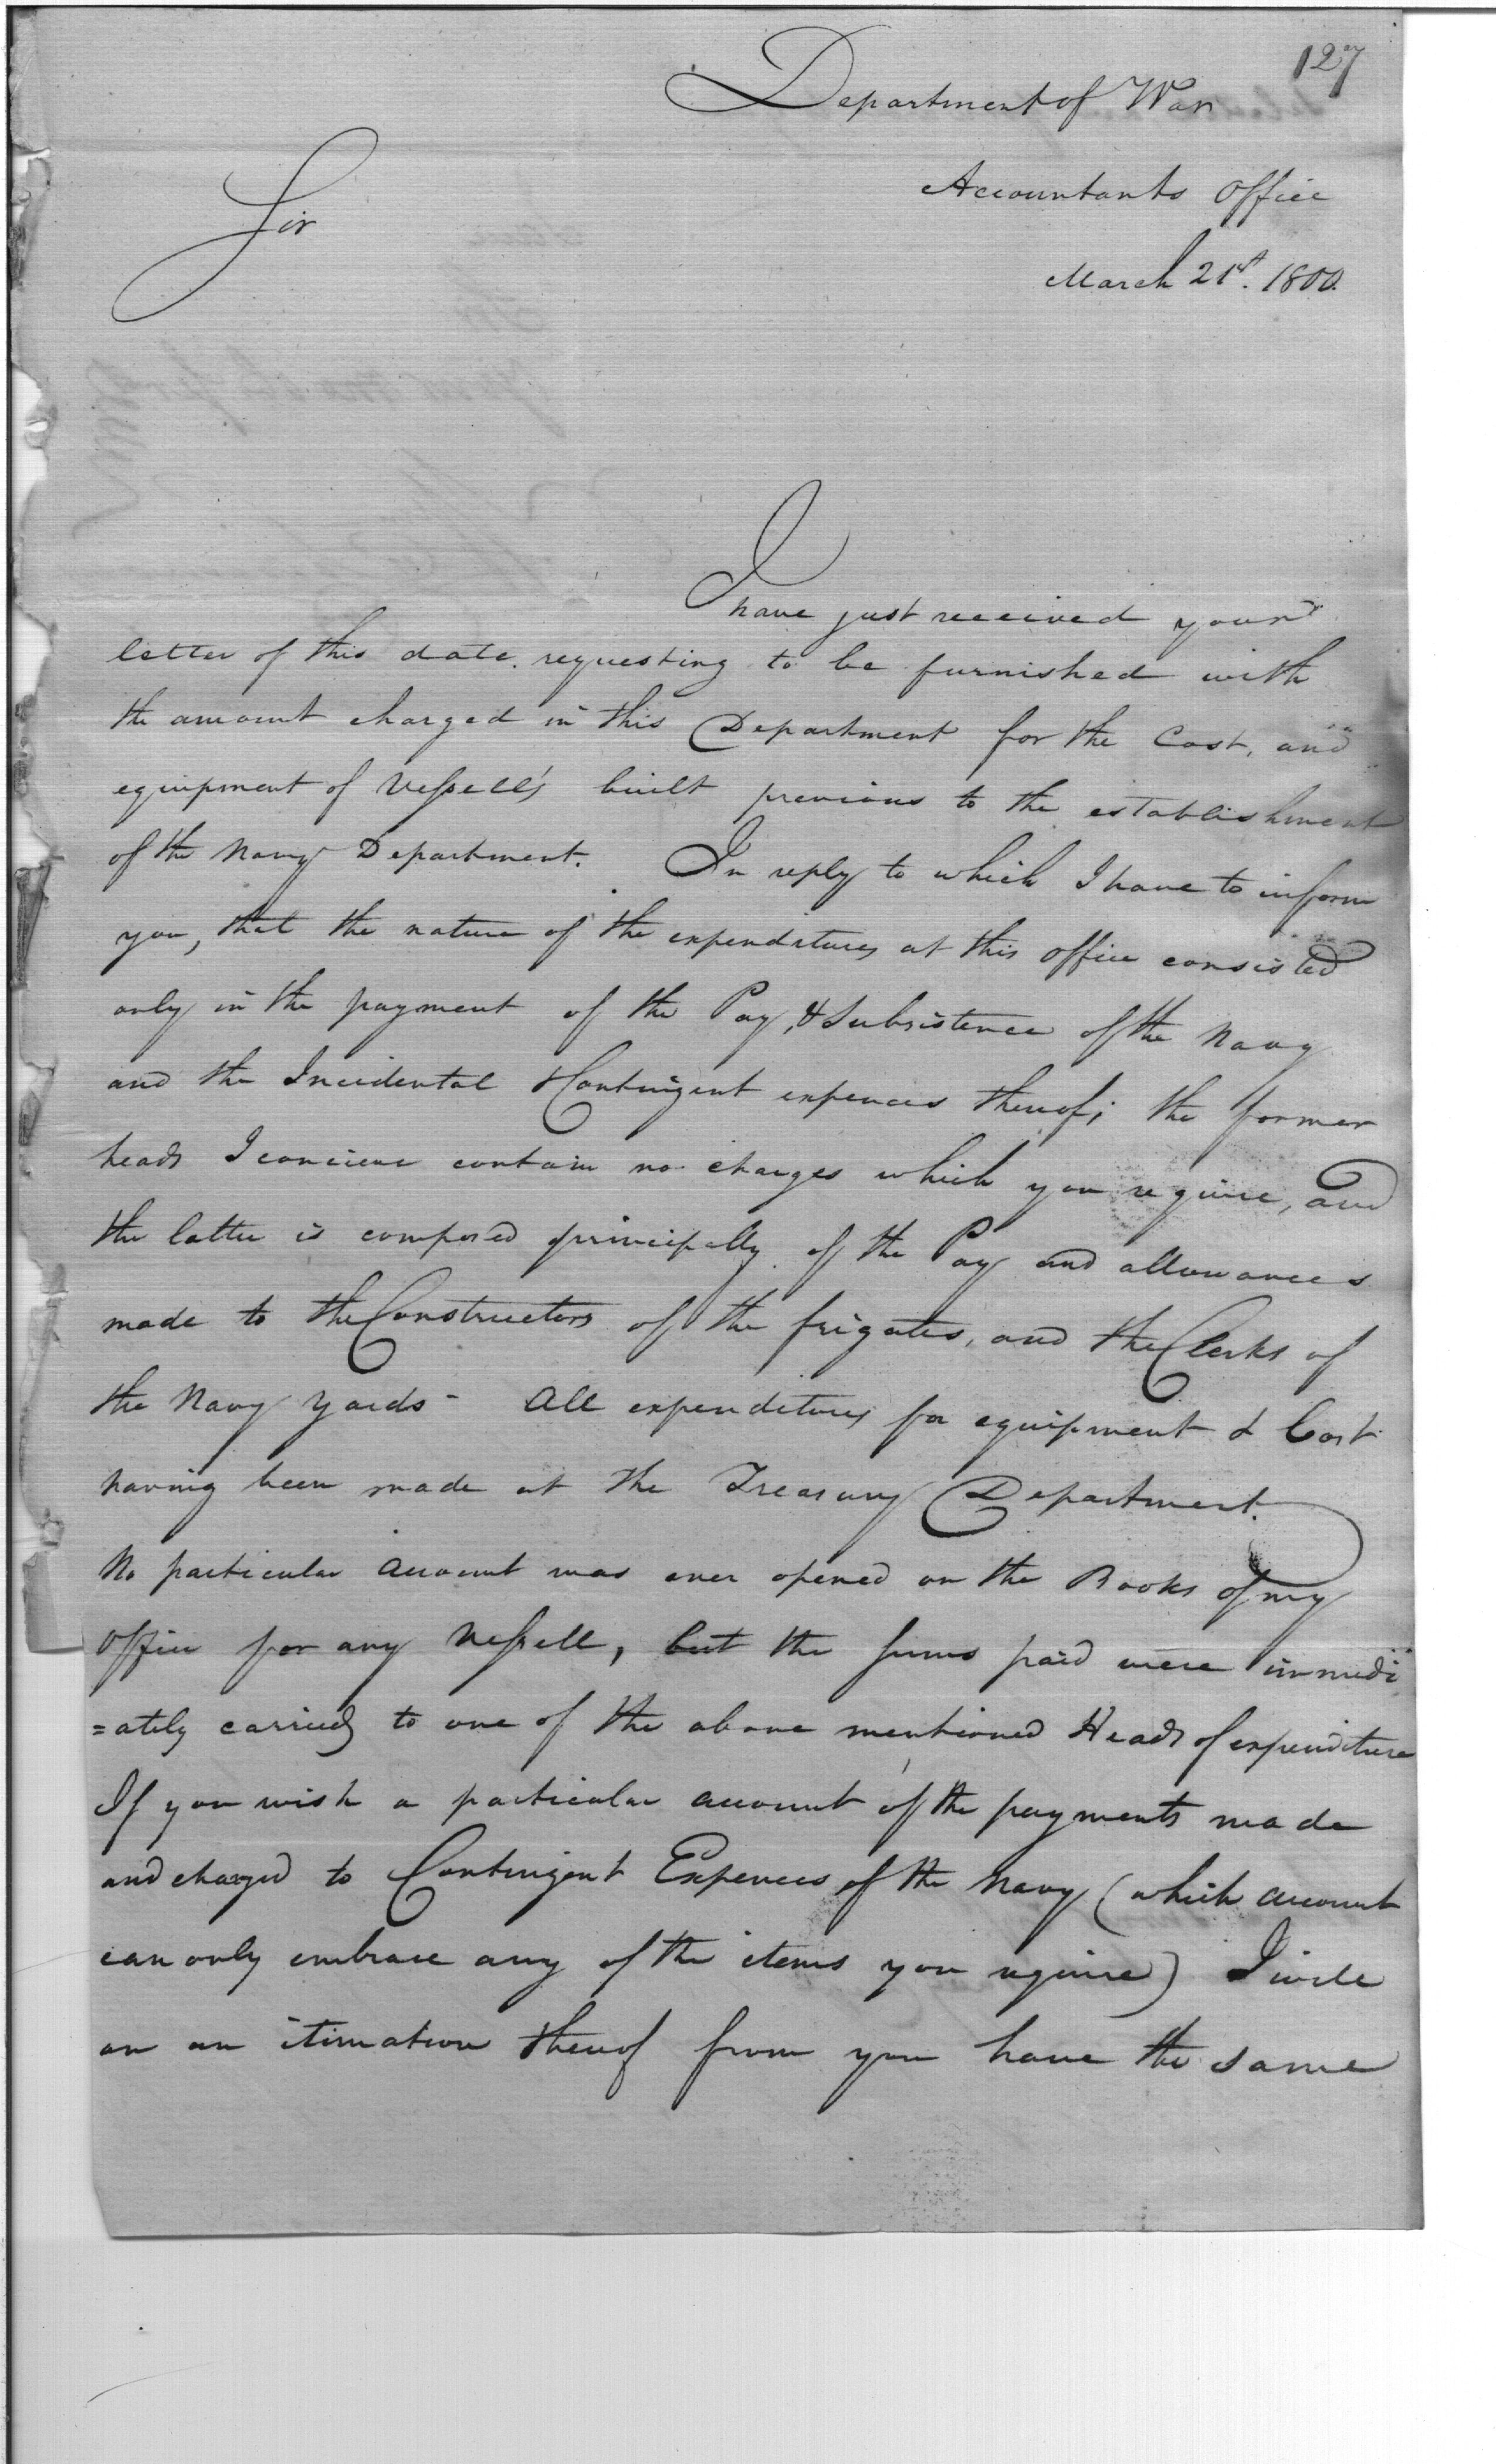 127
Department of War
Accountants Office
Sir
March 21st. 1800.
I have just received your
letter of this date requesting to be furnished with
the amount charged in this Department for the Cost, and
equipment of Vessell's built previous to the establishment
of the Navy Department. In reply to which I have to inform
you, that the nature of the expenditures at this office consisted
only in the payment of the Pay, & Subsistence of the Navy
and the Incidental & Contingent expences thereof; the former
heads I concieve contain no charges which you require, and
the latter is composed principally of the Pay and allowances
made to the Constructors of the frigates, and the Clerks of
the Navy Yards - All expenditures for equipment & Cost
having been made at the Treasury Department.
No particular Account was ever opened on the Books of my
Office for any Vessell, but the sums paid were immedi
=ately carried to one of the above mentioned Heads of expenditure
If you wish a particular account of the payments made
and charged to Contingent Expences of the Navy (which account
can only embrace any of the items you require) I will
on an itimation thereof from you have the same